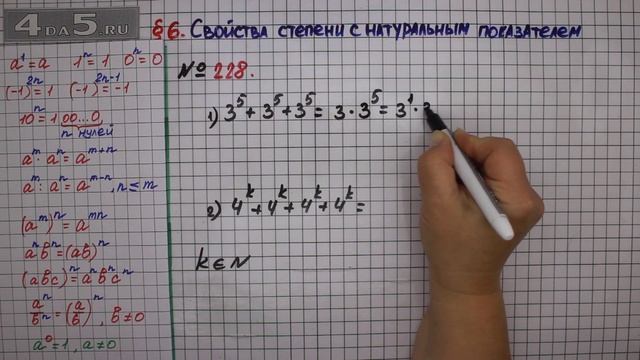 4DA5.RU
§6. Свойства степени с натуральным показателем
a¹ = a 1ⁿ = 1 0ⁿ = 0
(-1)²ⁿ = 1 (-1)²ⁿ⁻¹ = -1
10ⁿ = 1 00...0,
n нулей
aᵐ · aⁿ = aᵐ⁺ⁿ
aᵐ : aⁿ = aᵐ⁻ⁿ, n ≤ m
(aᵐ)ⁿ = aᵐⁿ
aⁿbⁿ = (ab)ⁿ
(abc)ⁿ = aⁿbⁿcⁿ
aⁿ/bⁿ = (a/b)ⁿ, b ≠ 0
a⁰ = 1, a ≠ 0
№ 228.
1) 3⁵ + 3⁵ + 3⁵ = 3 · 3⁵ = 3¹ ·
2) 4ᵏ + 4ᵏ + 4ᵏ + 4ᵏ =
k ∈ N